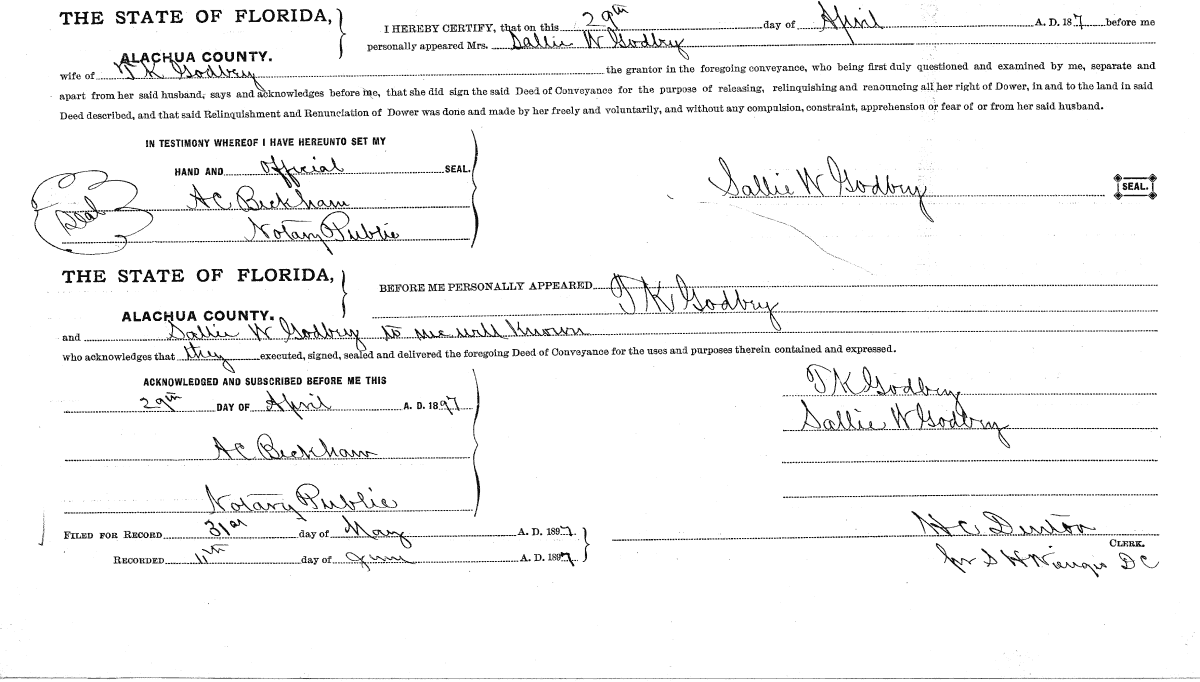 THE STATE OF FLORIDA,
ALACHUA COUNTY.
I HEREBY CERTIFY, that on this 29th day of April A. D. 187 before me
personally appeared Mrs. Sallie W Godbry
wife of T K Godbry the grantor in the foregoing conveyance, who being first duly questioned and examined by me, separate and
apart from her said husband, says and acknowledges before me, that she did sign the said Deed of Conveyance for the purpose of releasing, relinquishing and renouncing all her right of Dower, in and to the land in said
Deed described, and that said Relinquishment and Renunciation of Dower was done and made by her freely and voluntarily, and without any compulsion, constraint, apprehension or fear of or from her said husband.
IN TESTIMONY WHEREOF I HAVE HEREUNTO SET MY
HAND AND Official SEAL.
A C Beckham
Seal
Notary Public
Sallie W Godbry SEAL.
THE STATE OF FLORIDA,
ALACHUA COUNTY.
BEFORE ME PERSONALLY APPEARED T K Godbry
and Sallie W Godbry to me well Known
who acknowledges that they executed, signed, sealed and delivered the foregoing Deed of Conveyance for the uses and purposes therein contained and expressed.
ACKNOWLEDGED AND SUBSCRIBED BEFORE ME THIS
29th DAY OF April A. D. 1897
A C Beckham
Notary Public
T K Godbry
Sallie W Godbry
FILED FOR RECORD 31st day of May A. D. 1897.
RECORDED 11th day of June A. D. 1897
H C Denton
CLERK.
for S H Wienges D C